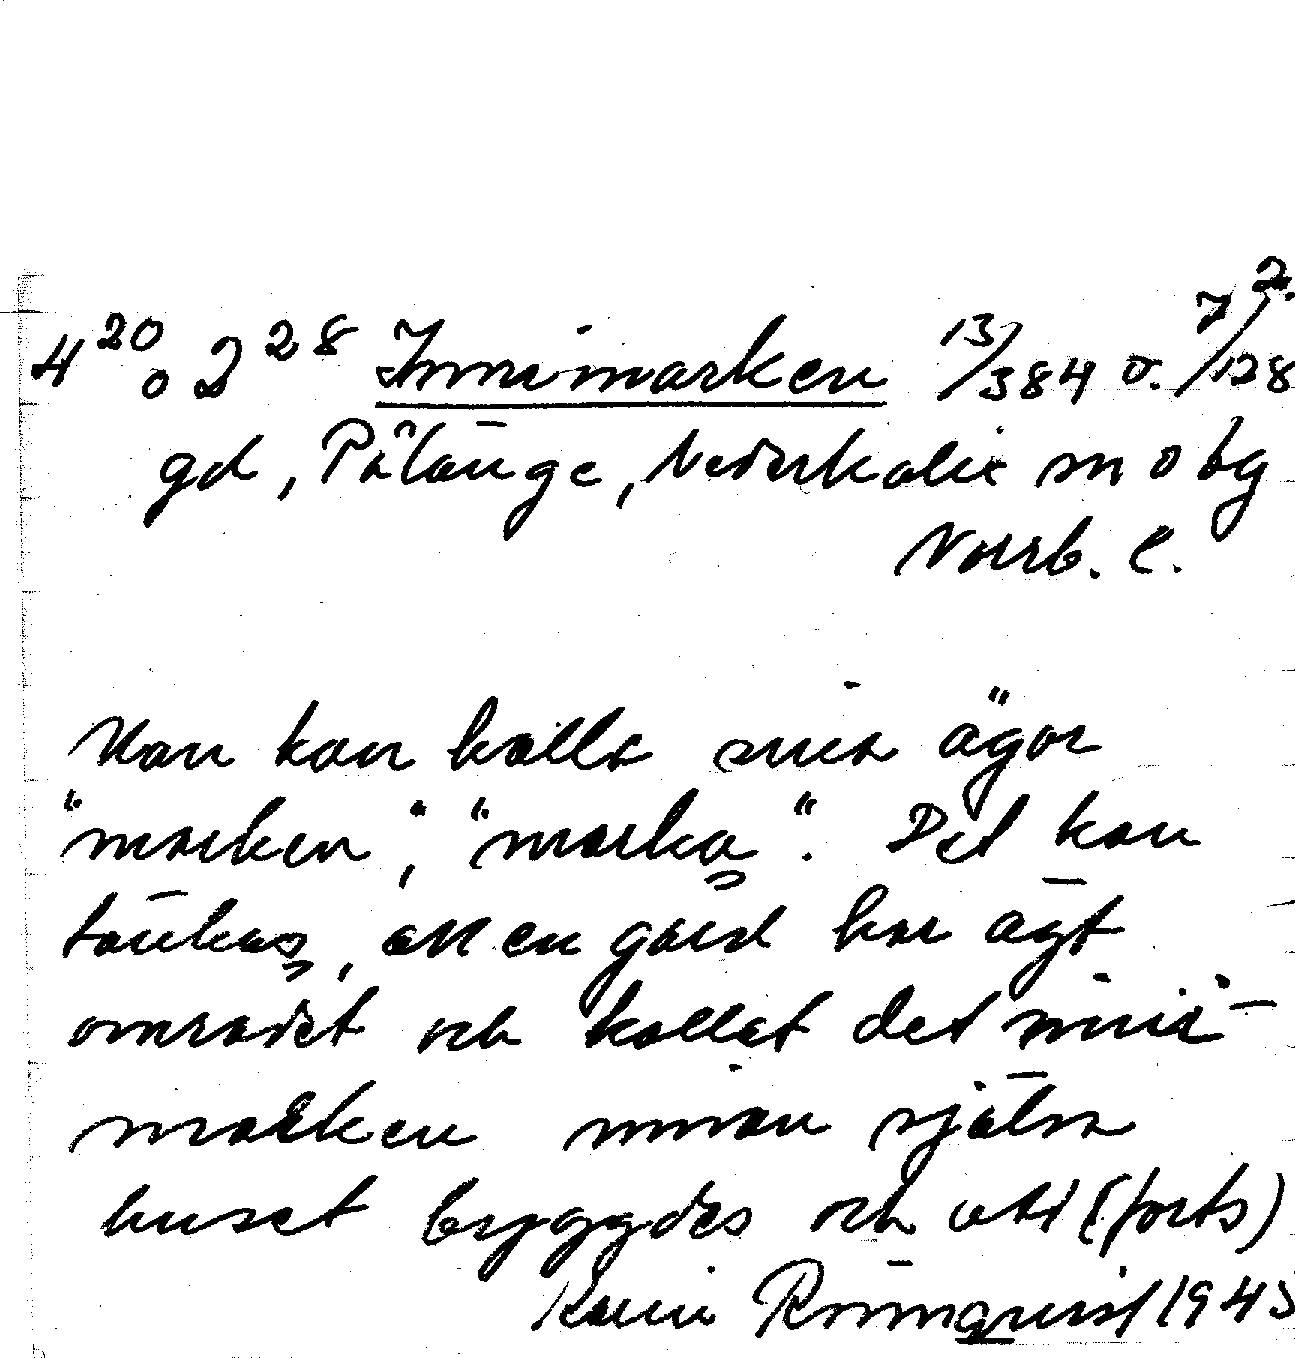 4 20 o 2 28 Innimarken 13/384 o. 7/128 2.
gd, Pålänge, Nederkalix sn o bg
Norrb. l.
Man kan kalla sina ägor
"marken", "marka". Det kan
tänkas, att en gård har ägt
området och kallat det
marken innan själva
huset byggdes och att (forts)
Karin Rönnquist 1943